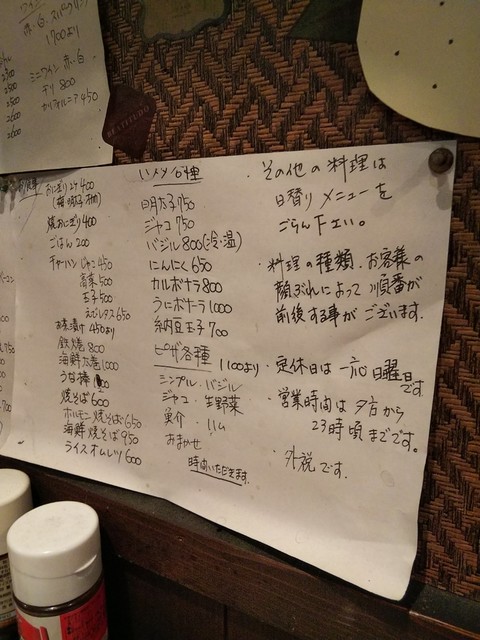 赤・白
1700より
ミニワイン 赤・白
チリ 800
カリフォルニア 450
2500
2500
2600
2600
おにぎり2ヶ 400
焼おにぎり 400
ごはん 200
チャーハン じゃこ 450
高菜 500
玉子 500
えびレタス 650
お茶漬け 450より
鉄焼 800
海鮮太巻 1000
うな棒
焼そば 600
ホルモン焼そば 650
海鮮焼そば 950
ライスオムレツ 600
明太子 750
ジャコ 750
バジル 800(冷・温)
にんにく 650
カルボナラ 800
うにボナーラ 1000
納豆玉子 700
ピザ各種 1100より
シンプル・バジル
ジャコ・生野菜
魚介・ハム
おまかせ
時間いただきます。
その他の料理は
日替りメニューを
ごらん下さい。
・料理の種類、お客様の
顔ぶれによって順番が
前後する事がございます。
・定休日は 日曜日
です
・営業時間は夕方から
23時頃までです。
・外税です.